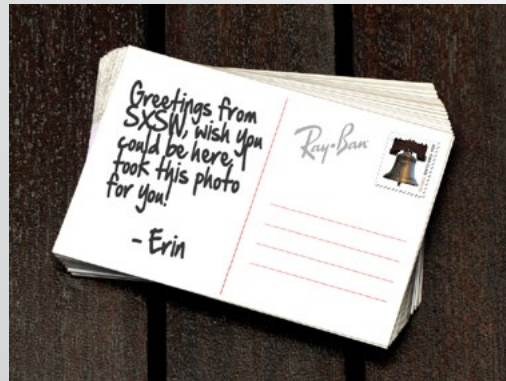 Greetings from
SXSW, wish you
could be here, I
took this photo
for you!
- Erin
Ray-Ban